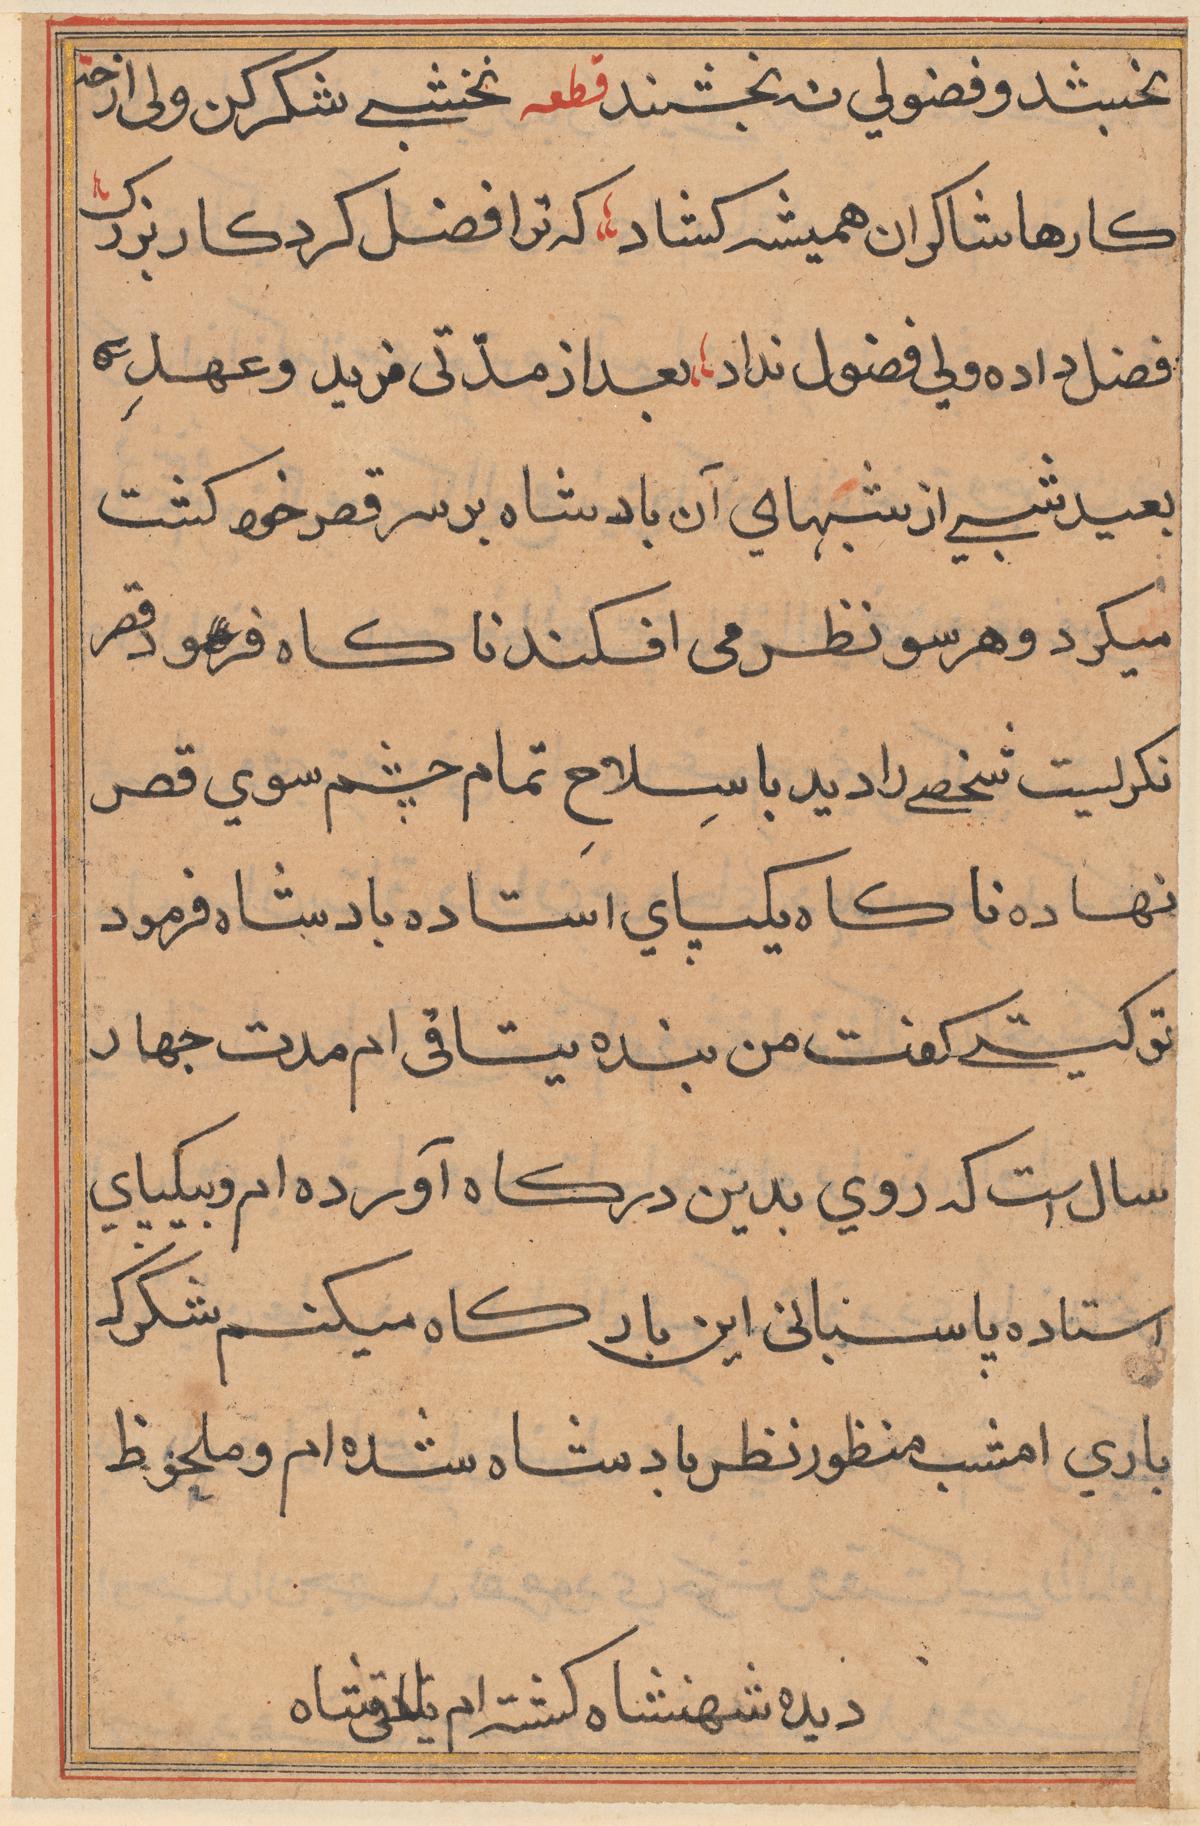 نخبشد و فضولي نه بخشند قطعه نخشبے شکر کن ولی از حق
کارها شاکران همیشه کشاد که ترا فضل کرد کار بزرک
فضل داده ولي فضول نداد بعد از مدّتی مزید و عهدِے
بعید شبے از شبهاي آن بادشاه بر سر قصر خود کشت
میکرد و هر سو نظر می افکند ناکاه فرود قصر
نکریست شخصے را دید با سِلاحِ تمام چشم سوي قصر
نهاده ناکاه یکپاي استاده بادشاه فرمود
تو کیستے کفت من بنده یتاقی ام مدت چهار
سال است که روي بدین درکاه آورده ام و بیکپاي
استاده پاسبانی این بارکاه میکنم شکر که
باري امشب منظور نظر بادشاه شده ام و ملحوظ
دیده شهنشاه کشته ام شاه